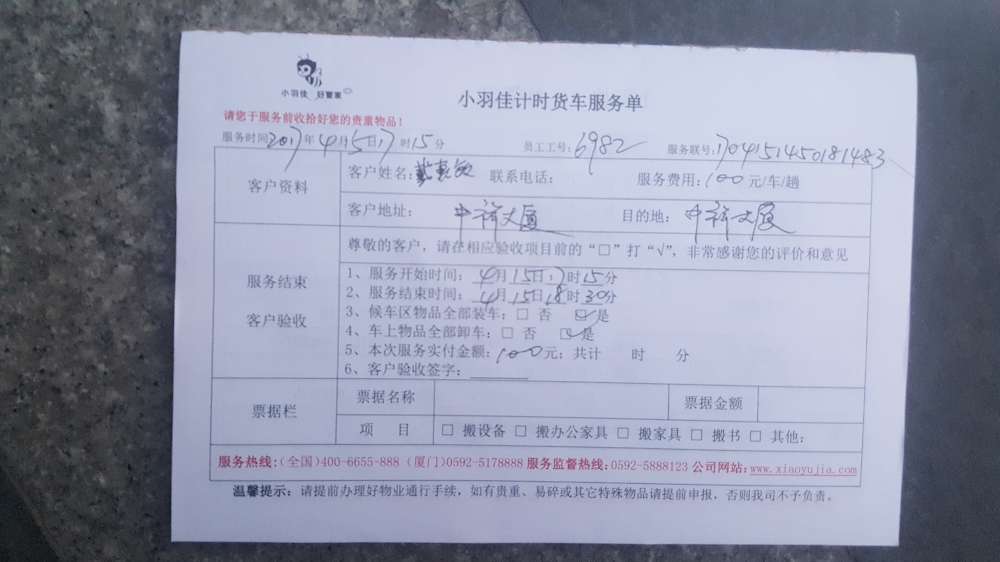 小羽佳 好管家
小羽佳计时货车服务单
请您于服务前收拾好您的贵重物品！
服务时间2017年4月15日17时15分 员工工号：6982 服务联号：1704151450181483
客户资料
客户姓名： 联系电话： 服务费用：100元/车/趟
客户地址： 中祥大厦 目的地： 中祥大厦
服务结束
客户验收
尊敬的客户，请在相应验收项目前的“□”打“√”，非常感谢您的评价和意见
1、服务开始时间：4月15日17时15分
2、服务结束时间：4月15日18时30分
3、候车区物品全部装车：□ 否 ☑是
4、车上物品全部卸车：□ 否 ☑是
5、本次服务实付金额：100元；共计 时 分
6、客户验收签字：
票据栏
票据名称 票据金额
项 目 □ 搬设备 □ 搬办公家具 □ 搬家具 □ 搬书 □ 其他：
服务热线：(全国)400-6655-888（厦门)0592-5178888 服务监督热线：0592-5888123 公司网站：www.xiaoyujia.com
温馨提示：请提前办理好物业通行手续，如有贵重、易碎或其它特殊物品请提前申报，否则我司不予负责。